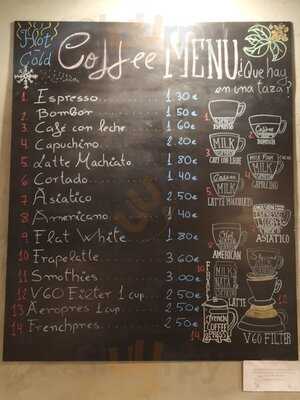 Hot & Cold
Coffee MENU
¿Que hay
en una taza?
1 Espresso 1 30€
2 Bombon 1 50€
3 Café con leche 1 60€
4 Capuchino 2 20€
5 Latte Machiato 1 80€
6 Cortado 1 40€
7 Asiatico 2 50€
8 Americano 1 40€
9 Flat White 1 80€
10 Frapelatte 3 60€
11 Smothies 3 00€
12 V60 Filter 1 cup 2 50€
13 Aeropres 1 cup 2 50€
14 Frenchpres 2 50€
1
ESPRESSO
2
Coffee
BOMBON
3
MILK
CAFE CON LECHE
4
MILK FOAM
MILK
CAPUCHINO
5
LATTE MACCHIATO
7
ASIATICO
8
AMERICAN
10
MILK
LATTE
12
V60 FILTER
14
French
COFFEE
PRESS